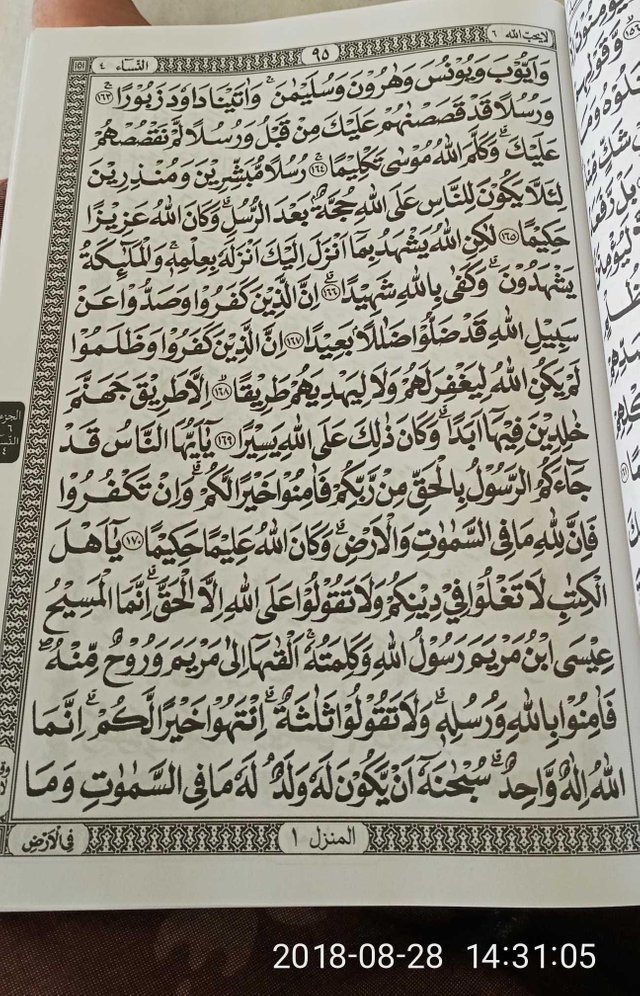 لا يحب الله ٦
٩٥
النساء ٤
١٥١
وَاَيُّوْبَ وَيُوْنُسَ وَهٰرُوْنَ وَسُلَيْمٰنَ ۚ وَاٰتَيْنَا دَاوٗدَ زَبُوْرًا ۚ ﴿١٦٣﴾
وَرُسُلًا قَدْ قَصَصْنٰهُمْ عَلَيْكَ مِنْ قَبْلُ وَرُسُلًا لَّمْ نَقْصُصْهُمْ
عَلَيْكَ ۗ وَكَلَّمَ اللّٰهُ مُوْسٰى تَكْلِيْمًا ۚ ﴿١٦٤﴾ رُسُلًا مُّبَشِّرِيْنَ وَمُنْذِرِيْنَ
لِئَلَّا يَكُوْنَ لِلنَّاسِ عَلَى اللّٰهِ حُجَّةٌۢ بَعْدَ الرُّسُلِ ۗ وَكَانَ اللّٰهُ عَزِيْزًا
حَكِيْمًا ﴿١٦٥﴾ لٰكِنِ اللّٰهُ يَشْهَدُ بِمَآ اَنْزَلَ اِلَيْكَ اَنْزَلَهٗ بِعِلْمِهٖ ۚ وَالْمَلٰٓئِكَةُ
يَشْهَدُوْنَ ۗ وَكَفٰى بِاللّٰهِ شَهِيْدًا ۗ ﴿١٦٦﴾ اِنَّ الَّذِيْنَ كَفَرُوْا وَصَدُّوْا عَنْ
سَبِيْلِ اللّٰهِ قَدْ ضَلُّوْا ضَلٰلًاۢ بَعِيْدًا ﴿١٦٧﴾ اِنَّ الَّذِيْنَ كَفَرُوْا وَظَلَمُوْا
لَمْ يَكُنِ اللّٰهُ لِيَغْفِرَ لَهُمْ وَلَا لِيَهْدِيَهُمْ طَرِيْقًا ۙ ﴿١٦٨﴾ اِلَّا طَرِيْقَ جَهَنَّمَ
خٰلِدِيْنَ فِيْهَآ اَبَدًا ۗ وَكَانَ ذٰلِكَ عَلَى اللّٰهِ يَسِيْرًا ﴿١٦٩﴾ يٰٓاَيُّهَا النَّاسُ قَدْ
جَآءَكُمُ الرَّسُوْلُ بِالْحَقِّ مِنْ رَّبِّكُمْ فَاٰمِنُوْا خَيْرًا لَّكُمْ ۗ وَاِنْ تَكْفُرُوْا
فَاِنَّ لِلّٰهِ مَا فِى السَّمٰوٰتِ وَالْاَرْضِ ۗ وَكَانَ اللّٰهُ عَلِيْمًا حَكِيْمًا ﴿١٧٠﴾ يٰٓاَهْلَ
الْكِتٰبِ لَا تَغْلُوْا فِيْ دِيْنِكُمْ وَلَا تَقُوْلُوْا عَلَى اللّٰهِ اِلَّا الْحَقَّ ۗ اِنَّمَا الْمَسِيْحُ
عِيْسَى ابْنُ مَرْيَمَ رَسُوْلُ اللّٰهِ وَكَلِمَتُهٗ ۚ اَلْقٰىهَآ اِلٰى مَرْيَمَ وَرُوْحٌ مِّنْهُ ۖ
فَاٰمِنُوْا بِاللّٰهِ وَرُسُلِهٖ ۗ وَلَا تَقُوْلُوْا ثَلٰثَةٌ ۗ اِنْتَهُوْا خَيْرًا لَّكُمْ ۗ اِنَّمَا
اللّٰهُ اِلٰهٌ وَّاحِدٌ ۗ سُبْحٰنَهٗٓ اَنْ يَّكُوْنَ لَهٗ وَلَدٌ ۘ لَهٗ مَا فِى السَّمٰوٰتِ وَمَا
المنزل ١
فِي الْاَرْضِ
الجزء
٦
النساء
٤
2018-08-28 14:31:05